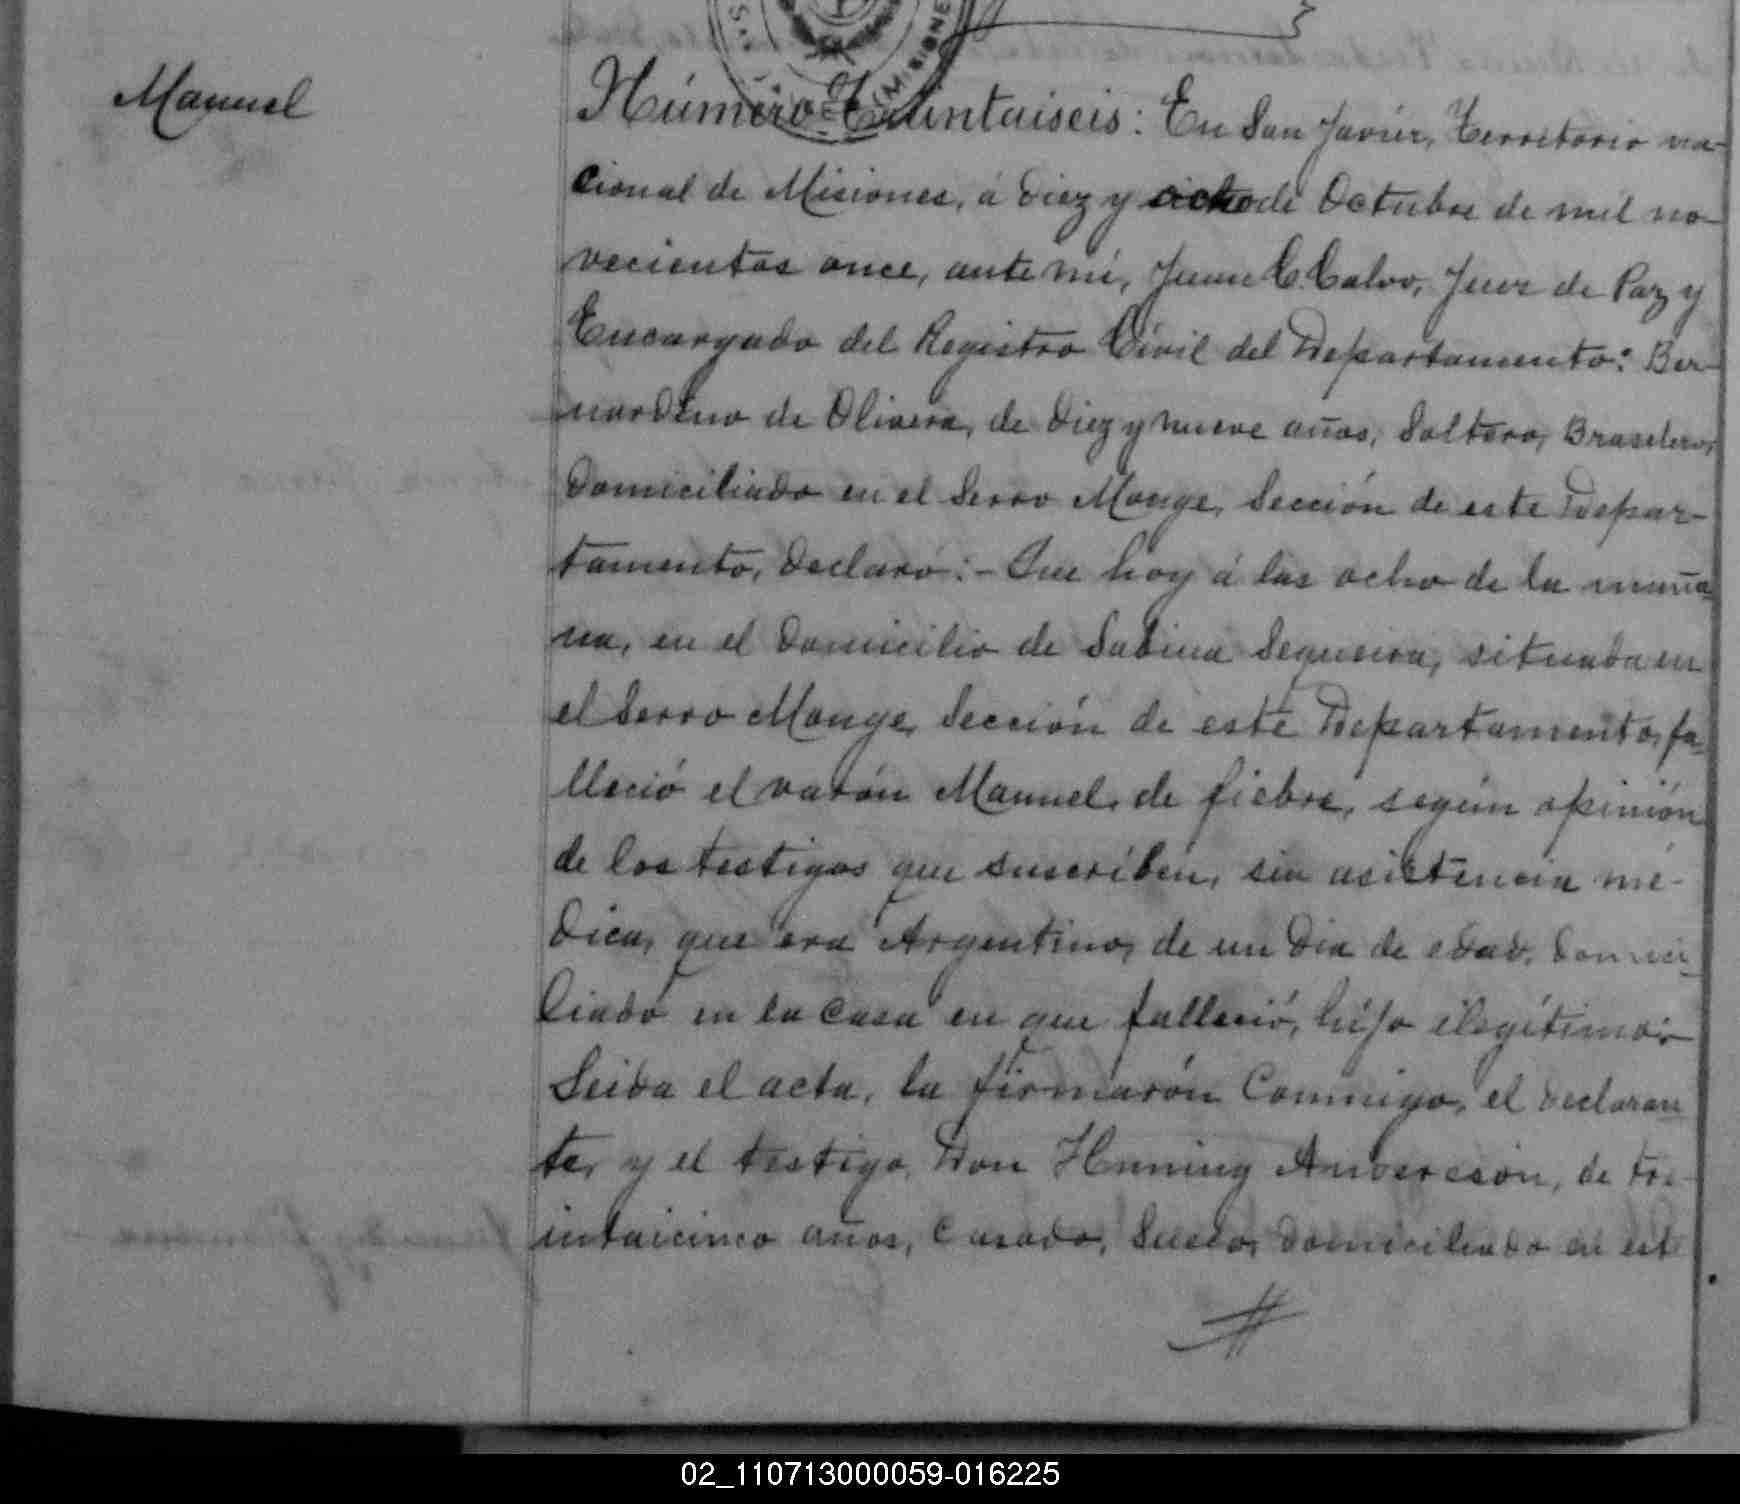 MISIONES
Manuel
Número Treintaiseis: En San Javier, Territorio na-
cional de Misiones, á diez y ocho de Octubre de mil no-
vecientos once, ante mí, Juan C. Calvo, Juez de Paz y
Encargado del Registro Civil del Departamento: Ber-
nardino de Olivera, de diez y nueve años, Soltero, Brasilero,
domiciliado en el Serro Monge, Sección de este Depar-
tamento, declaró:- Que hoy á las ocho de la maña-
na, en el domicilio de Sabina Sequeira, situada en
el Serro Monge, Sección de este Departamento, fa-
lleció el varón Manuel, de fiebre, según opinión
de los testigos que suscriben, sin asistencia mé-
dica, que era Argentino, de un dia de edad, domici-
liado en la casa en que falleció, hijo ilegítimo:-
Leida el acta, la firmarón conmigo, el declaran-
te, y el testigo, Don Henning Anderesón, de tre-
intaicinco años, casado, Sueco, domiciliado en este
02_110713000059-016225